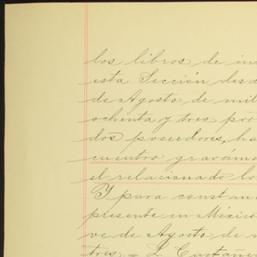 los libros de in
esta Sección desd
de Agosto de mil
ochenta y tres por
dos poseedores, ha
cuentro graváme
el relacionado lo
Y para constan
presente en Méxic
ve de Agosto de
tres = L. Castañe